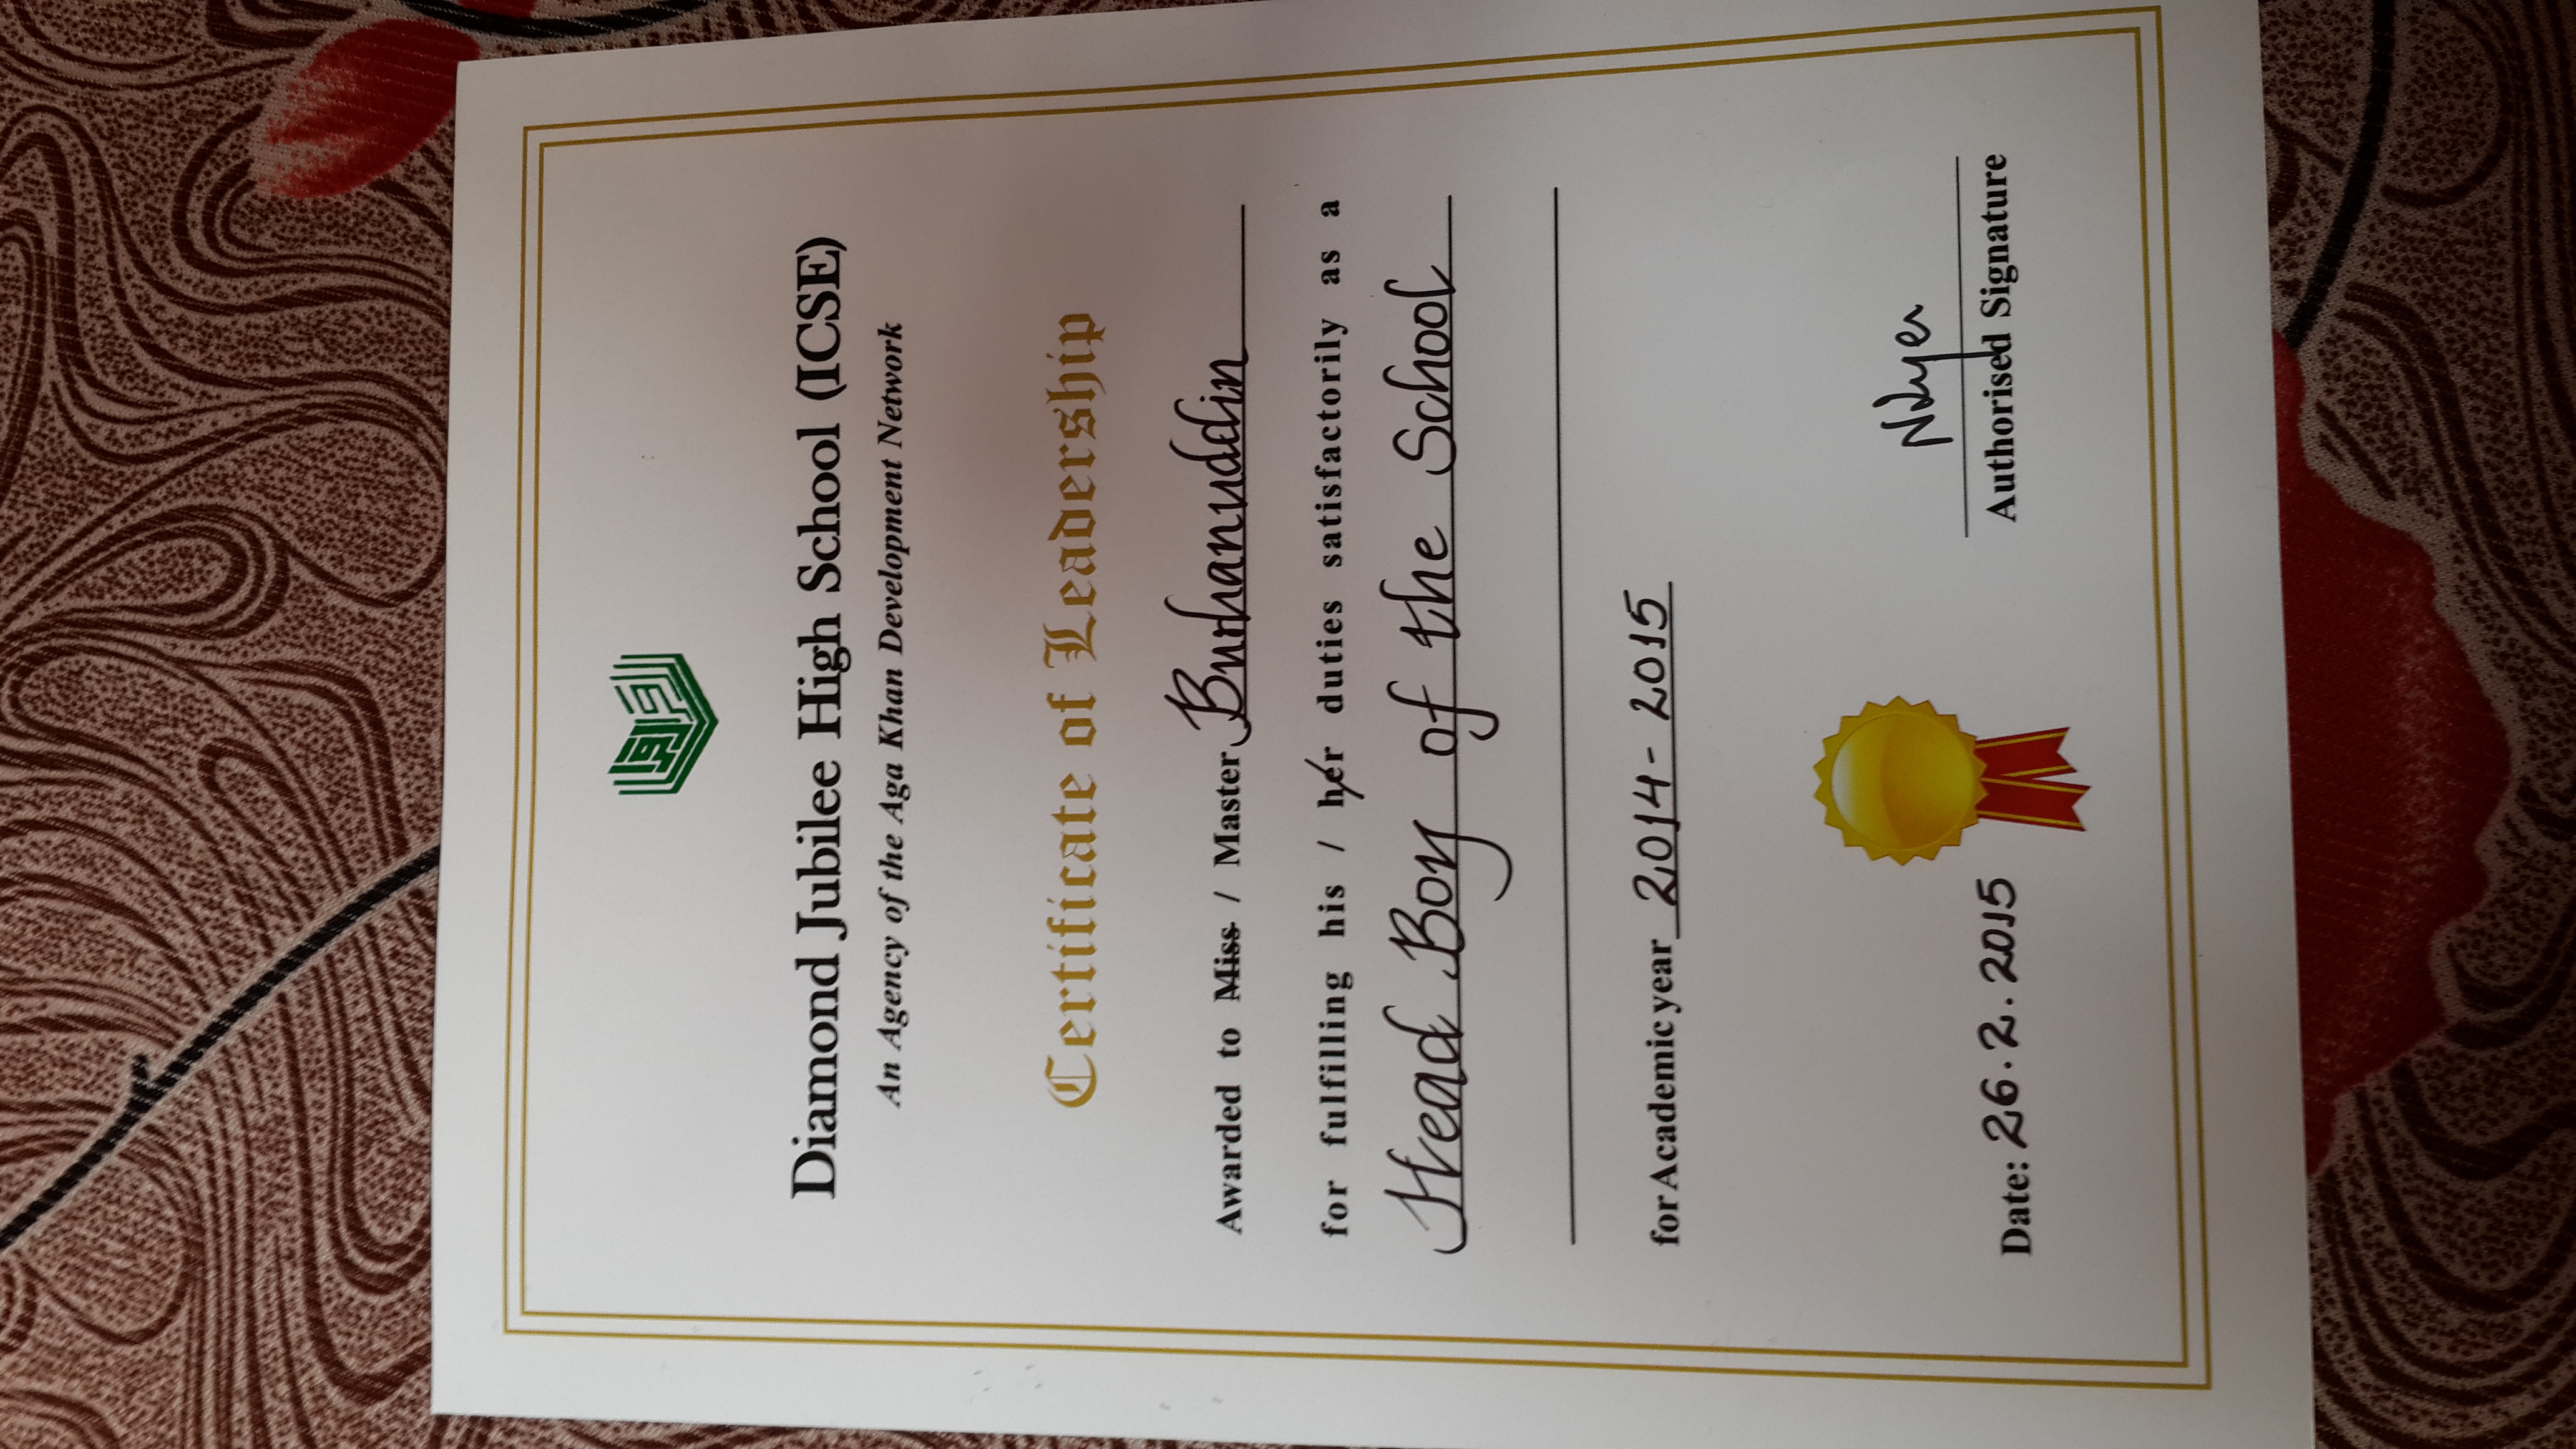 Diamond Jubilee High School (ICSE)
An Agency of the Aga Khan Development Network
Certificate of Leadership
Awarded to Miss / Master Burhanuddin
for fulfilling his / her duties satisfactorily as a
Head Boy of the School
for Academic year 2014-2015
Date: 26.2.2015
Authorised Signature